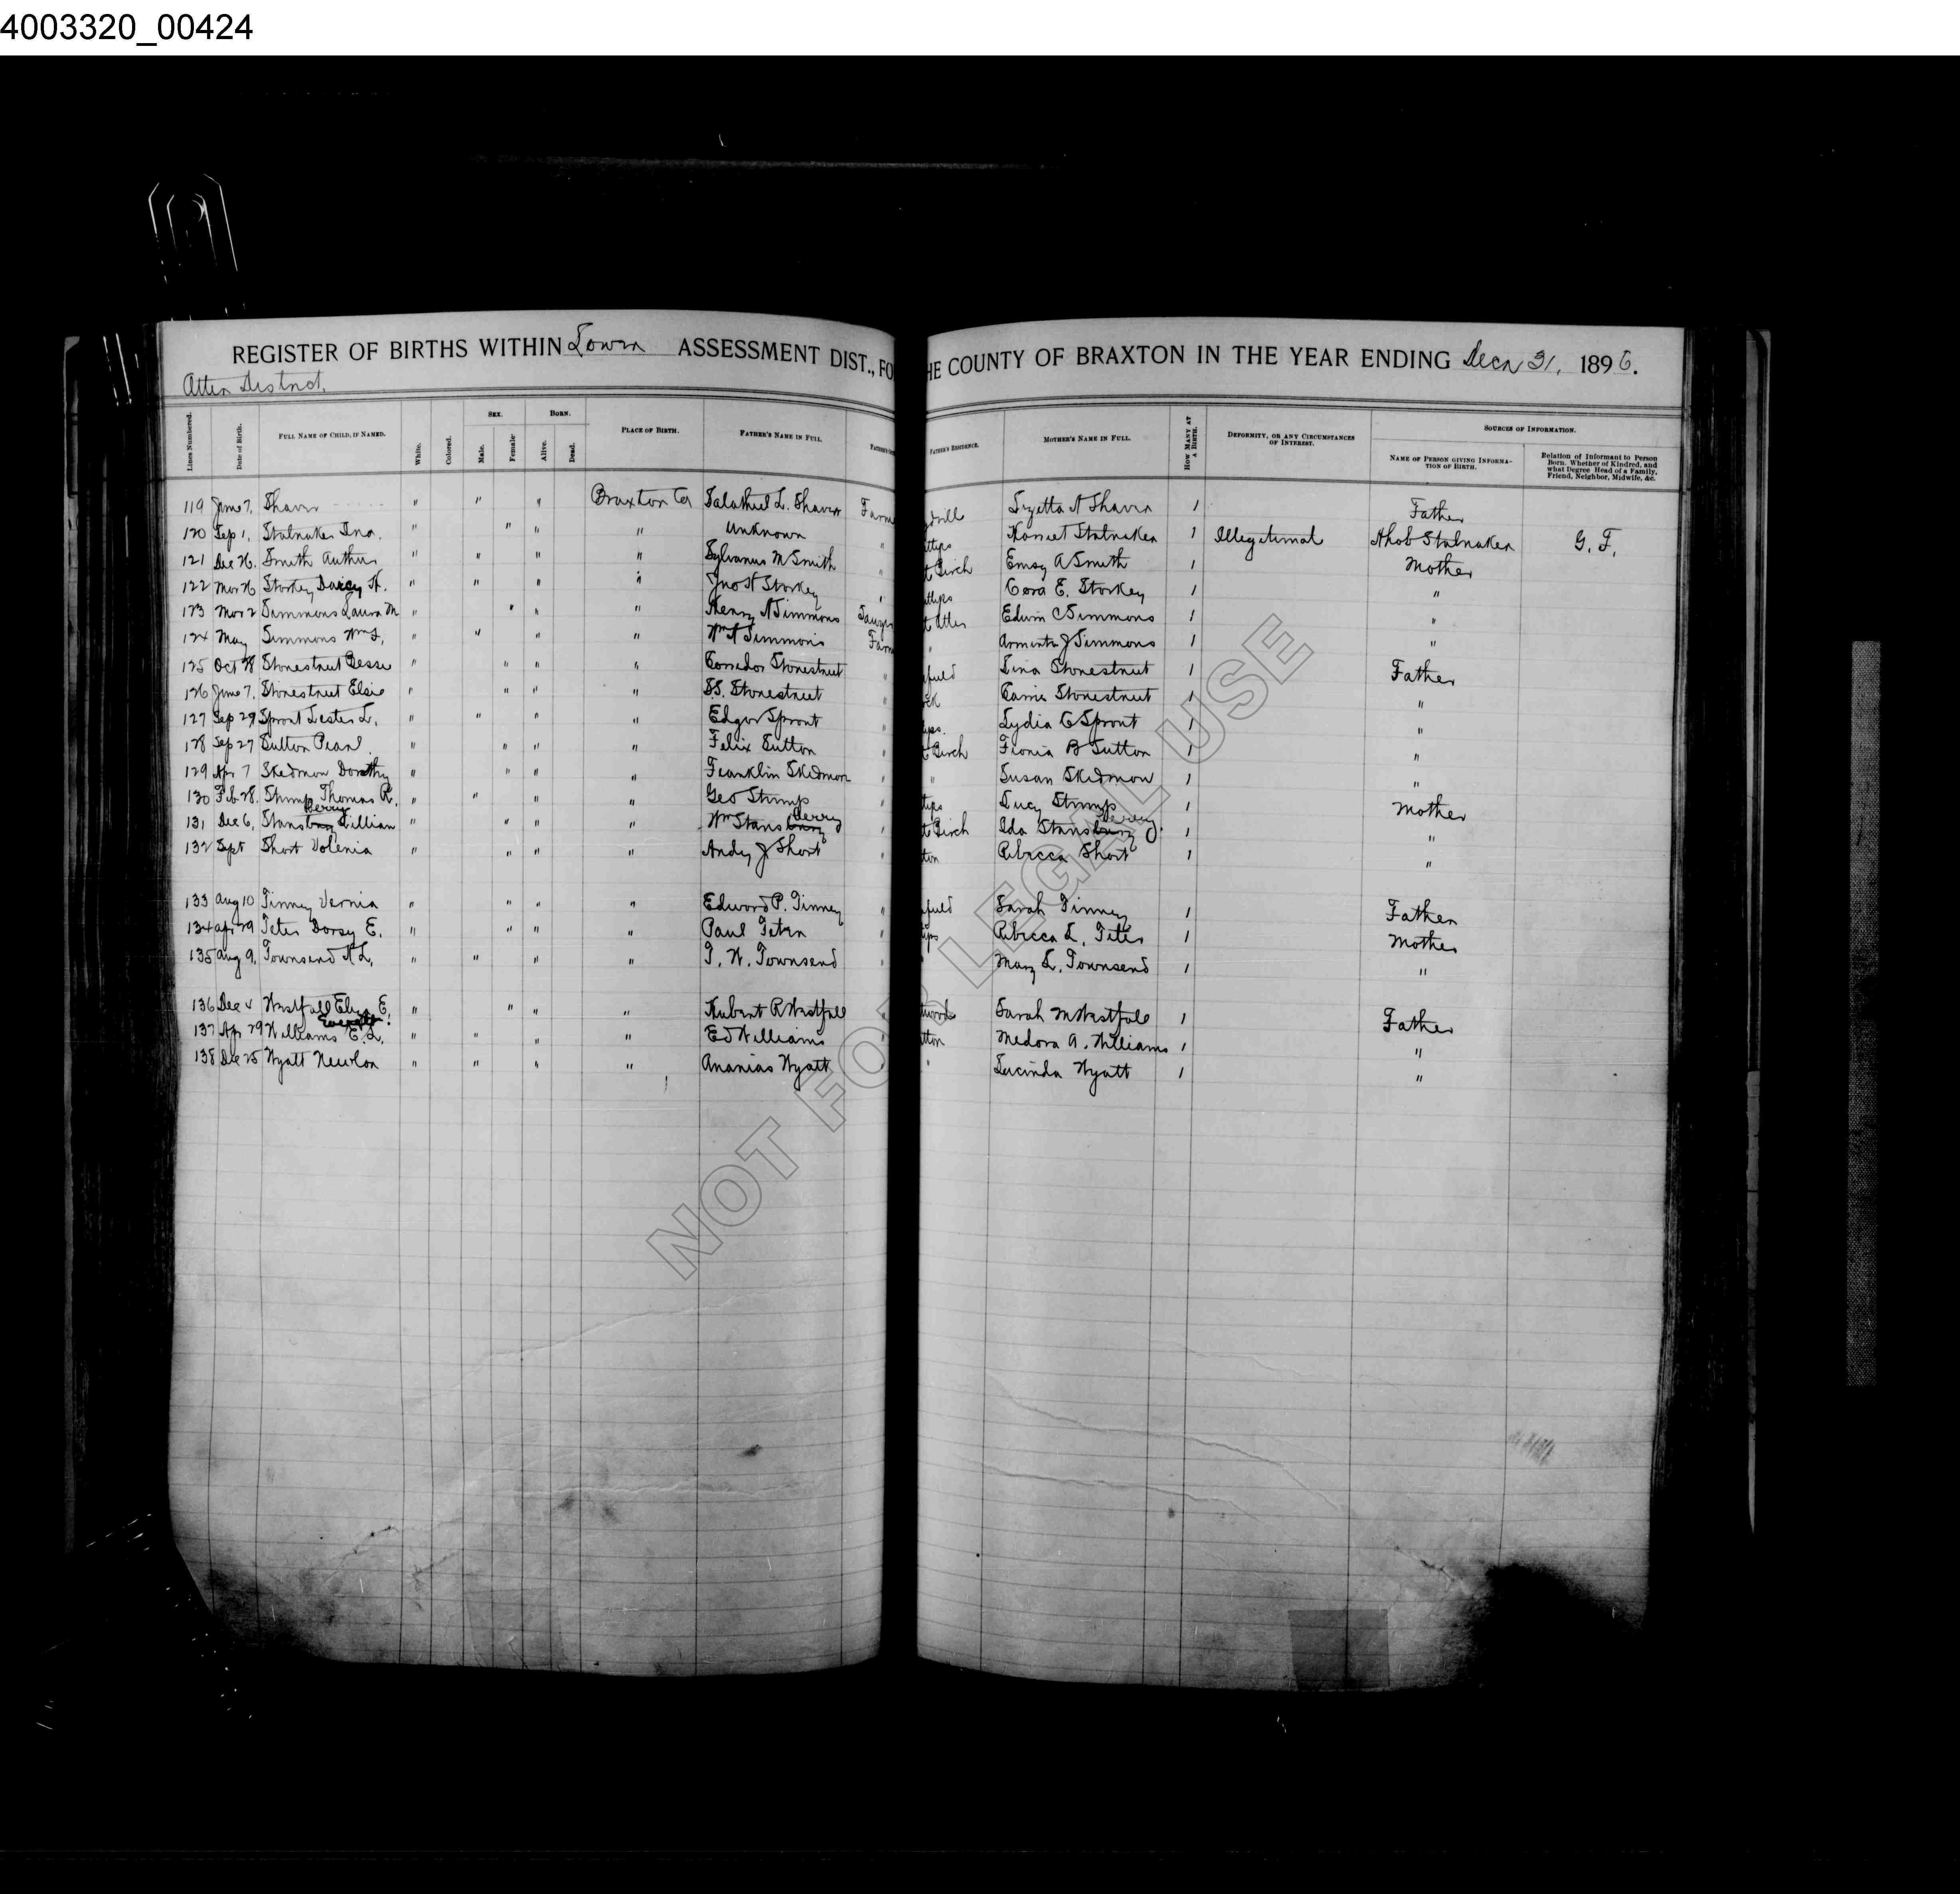 4003320_00424
REGISTER OF BIRTHS WITHIN Lower ASSESSMENT DIST., FO HE COUNTY OF BRAXTON IN THE YEAR ENDING Decr 31, 1896.
Otter District.
Lines Numbered. Date of Birth. FULL NAME OF CHILD, IF NAMED. White. Colored. SEX. Male. Female BORN. Alive. Dead. PLACE OF BIRTH. FATHER'S NAME IN FULL. FATHER'S RESIDENCE. MOTHER'S NAME IN FULL. HOW MANY AT A BIRTH. DEFORMITY, OR ANY CIRCUMSTANCES OF INTEREST. SOURCES OF INFORMATION. NAME OF PERSON GIVING INFORMATION OF BIRTH. Relation of Informant to Person Born. Whether of Kindred, and what Degree Head of a Family, Friend, Neighbor, Midwife, &c.
119 June 7, Shaver " " " Braxton Co Salathiel L. Shaver Farm Shaver 1 Father
120 Sep 1, Stalnaker Ina. " " " " Unknown " Harriet Stalnaker 1 Illegitimal Ahob Stalnaker G. F.
121 Dec 26. Smith Arthur " " " " Sylvanus M Smith " t Birch Emsy A Smith 1 Mother
122 Mar 26 Storkey Darcy H. " " " " Jno H Storkey " Cora E. Storkey 1 "
123 Mar 2 Simmons Laura M " " " " Henry N Simmons Edwin C Simmons 1 "
124 May Simmons Wm L, " " " " Wm N Simmons Farm " Arminta J Simmons 1 "
125 Oct 28 Stonestreet Bessie " " " " Corredor Stonestreet " Lina Stonestreet 1 Father
126 June 7, Stonestreet Elsie " " " " S.S. Stonestreet " Carrie Stonestreet 1 "
127 Sep 29 Sprout Lester L. " " " " Edgar Sprout " Lydia C Sprout 1 "
128 Sep 27 Sutton Pearl. " " " " Felix Sutton " t Birch Fionia B Sutton 1 "
129 Apr 7 Skidmore Dorothy " " " " Franklin Skidmore " " Susan Skidmore 1 "
130 Feb 28. Stump Thomas R. " " " " Geo Stump " Lucy Stump 1 Mother
131 Dec 6, Stansbury berry Lillian " " " " Wm Stansbury berry " t Birch Ida Stansbury berry 1 "
132 Sept Short Volenia " " " " Andy J Short " Rebecca Short 1 "
133 Aug 10 Tinney Vernia " " " " Edward P. Tinney " Sarah Tinney 1 Father
134 Apr 29 Teter Dorsy E. " " " " Paul Teter " Rebecca L. Teter 1 Mother
135 Aug 9, Townsend A L, " " " " T. W. Townsend " " Mary L. Townsend 1 "
136 Dec 4 Westfall E. " " " " Hubert R Westfall " Sarah M Westfall 1 Father
137 Apr 29 Williams E. L. Everett " " " " Ed Williams " Medora A. Williams 1 "
138 Dec 25 Wyatt Newlon " " " " Ananias Wyatt " " Lucinda Wyatt 1 "
NOT FOR LEGAL USE